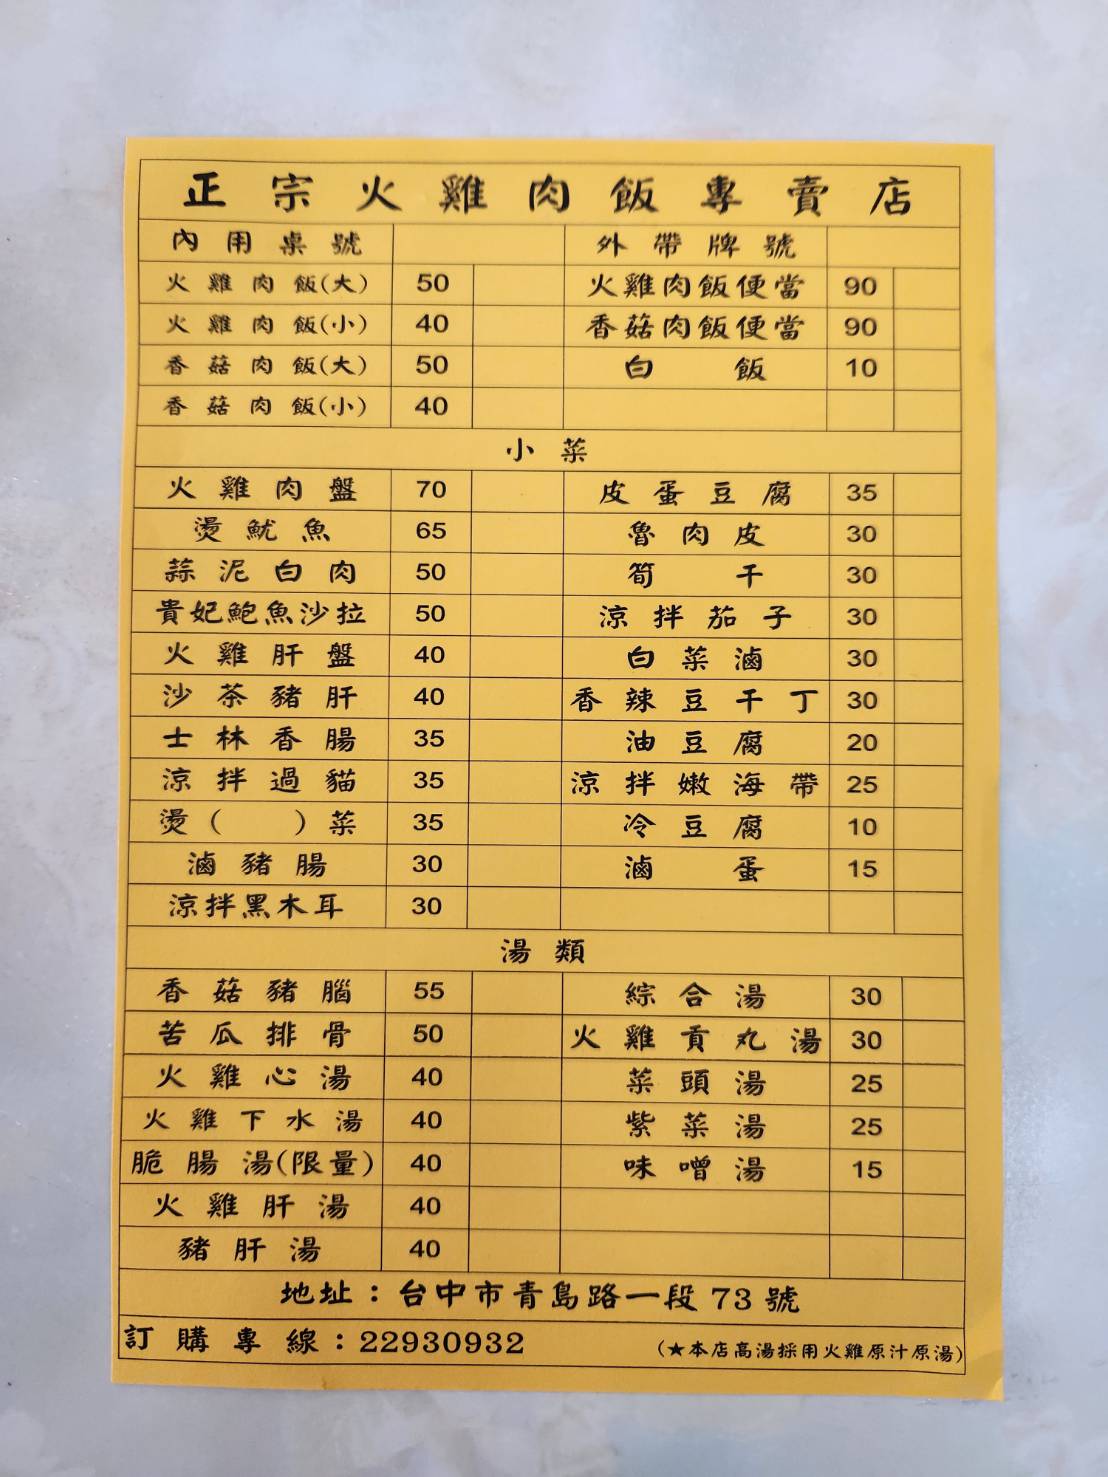 正宗火雞肉飯專賣店
內用桌號 外帶牌號
火雞肉飯(大) 50 火雞肉飯便當 90
火雞肉飯(小) 40 香菇肉飯便當 90
香菇肉飯(大) 50 白飯 10
香菇肉飯(小) 40
小菜
火雞肉盤 70 皮蛋豆腐 35
燙魷魚 65 魯肉皮 30
蒜泥白肉 50 筍干 30
貴妃鮑魚沙拉 50 涼拌茄子 30
火雞肝盤 40 白菜滷 30
沙茶豬肝 40 香辣豆干丁 30
士林香腸 35 油豆腐 20
涼拌過貓 35 涼拌嫩海帶 25
燙( )菜 35 冷豆腐 10
滷豬腸 30 滷蛋 15
涼拌黑木耳 30
湯類
香菇豬腦 55 綜合湯 30
苦瓜排骨 50 火雞貢丸湯 30
火雞心湯 40 菜頭湯 25
火雞下水湯 40 紫菜湯 25
脆腸湯(限量) 40 味噌湯 15
火雞肝湯 40
豬肝湯 40
地址：台中市青島路一段73號
訂購專線：22930932 (★本店高湯採用火雞原汁原湯)